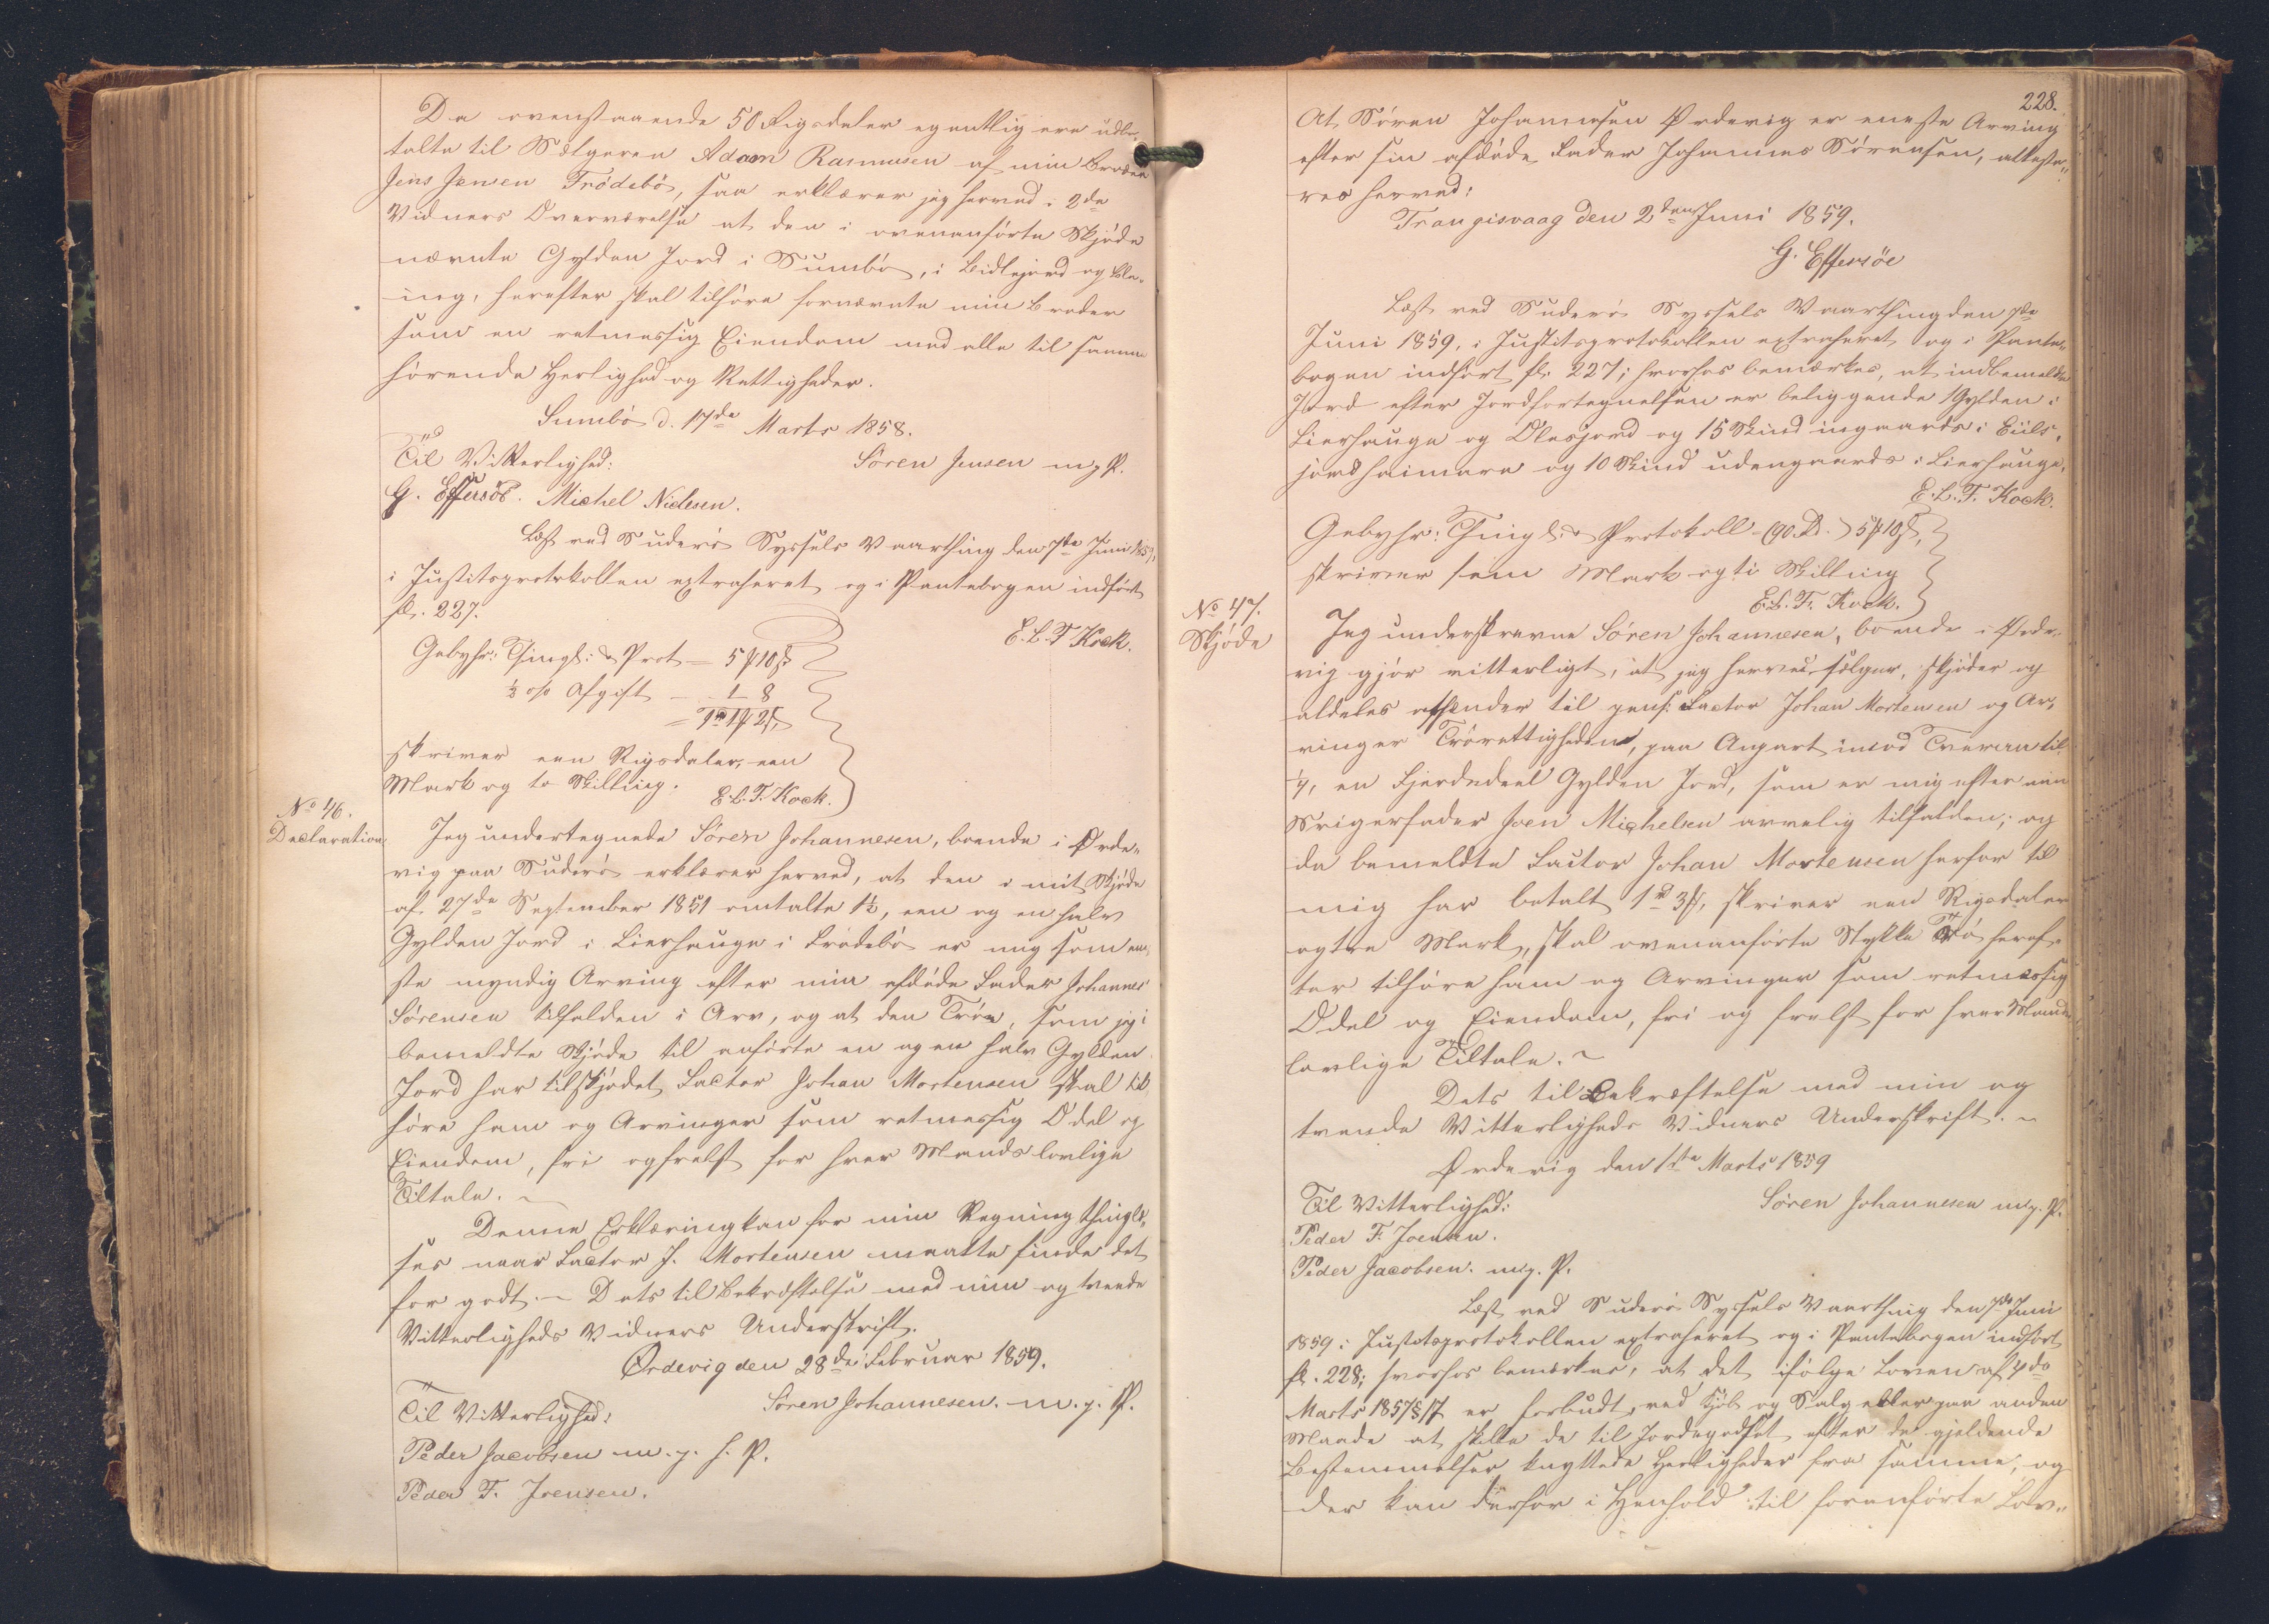 Da ovenstaaende 50 Rigsdaler egentlig ere udbe-
talte til Sælgeren Adam Rasmussen af min Broder
Jens Jensen Frödebö, saa erklærer jeg herved i 2de
Vidners Overværelse at den i ovenanförte Skjöde
nævnte Gylden Jord i Sumbö, i Lidlejord og
ing, herefter skal tilhöre fornævnte min Broder
som en retmessig Eiendom med alle til samme
hörende Herlighed og Rettigheder.
Sumbö d. 17de Marts 1858.
Til Vitterlighed:
Sören Jensen m. p.
G. Effersöe. Michel Nielsen.
Læst ved Suderö Syssels Vaarthing den 7de Juni 1859,
i Justitsprotokollen extraheret og i Pantebogen indfört
fol. 227.
E. L. T. Kock.
Gebyhr: Thingl: & Prot — 5 ꝑ 10 ß
½ o/o Afgift — 1 - 8
= 1 rd 1 ꝑ 2 ß
skriver een Rigsdaler, een
Mark og to Skilling. E. L. T. Kock.
No 46.
Declaration
Jeg undertegnede Sören Johannesen, boende i Örde-
vig paa Suderö erklærer herved, at den i mit Skjöde
af 27de September 1851 omtalte 1½, een og en halv
Gylden Jord i Lierhauge i Frödebö er mig som ene-
ste myndig Arving efter min afdöde Fader Johannes
Sörensen tilfalden i Arv, og at den Tröe, som jeg i
bemeldte Skjöde til anförte en og en halv Gylden
Jord har tilskjödet Factor Johan Mortensen skal til-
höre ham og Arvinger som retmessig Odel og
Eiendom, fri og frelst for hver Mands lovlige
Tiltale. ~
Denne Erklæring kan for min Regning thinglæ-
ses naar Factor J. Mortensen maatte finde det
for godt. ~ Dets til Bekræftelse med min og tvende
Vitterligheds Vidners Underskrift.
Ördevig den 28de Februar 1859.
Til Vitterlighed:
Sören Johannesen. m. p. P.
Peder Jacobsen m. p. P.
Peder F. Joensen.
228.
At Sören Johannesen Ördevig er eneste Arving
efter sin afdöde Fader Johannes Sörensen, atteste-
res herved:
Trangisvaag den 2den Juni 1859.
G. Effersöe
Læst ved Suderö Syssels Vaarthing den 7de
Juni 1859, i Justitsprotokollen extraheret og i Pante-
bogen indfört fol. 227; hvorhos bemærkes, at indbemeldte
Jord efter Jordfortegnelsen er beliggende 1 Gylden i
Lierhauge og Olesjord og 15 Skind indengaards i
jord heimara og 10 Skind udengaards i Lierhauge.
E. L. T. Kock.
Gebyhr: Thingl: & Protokoll 5 ꝑ 10 ß,
skriver fem Mark og ti Skilling
E. L. T. Kock.
No 47.
Skjöde
Jeg underskrevne Sören Johannesen, boende i Örde-
vig gjör vitterligt, at jeg herved sælger, skjöder og
aldeles afhænder til pens: Factor Johan Mortensen og Ar-
vinger Trörettigheden, paa Anpart imod Tveraa til
¼, en Fjerdedeel Gylden Jord, som er mig efter min
Svigerfader Joen Michelsen arvelig tilfalden; og
da bemeldte Factor Johan Mortensen herfor til
mig har betalt 1 rd 3 ꝑ, skriver een Rigsdaler
og tre Mark, skal ovenanförte Stykke Trö heref-
ter tilhöre ham og Arvinger som retmæssig
Odel og Eiendom, fri og frelst for hver Mands
lovlige Tiltale. ~
Dets til Bekræftelse med min og
tvende Vitterligheds Vidners Underskrift. ~
Ördevig den 1ste Marts 1859
Til Vitterlighed:
Sören Johannesen m. p. P.
Peder F. Joensen.
Peder Jacobsen. m. p. P.
Læst ved Suderö Syssels Vaarthing den 7de Juni
1859 i Justitsprotokollen extraheret og i Pantebogen indfört
fol. 228; hvorhos bemærkes, at det ifölge Loven af 4de
Marts 1857 § 17 er forbudt, ved Kjöb og Salg eller paa anden
Maade at skille de til Jordegodset efter de gjeldende
Bestemmelser knyttede Herligheder fra samme, og
der kan derfor i Henhold til foranförte Lov-